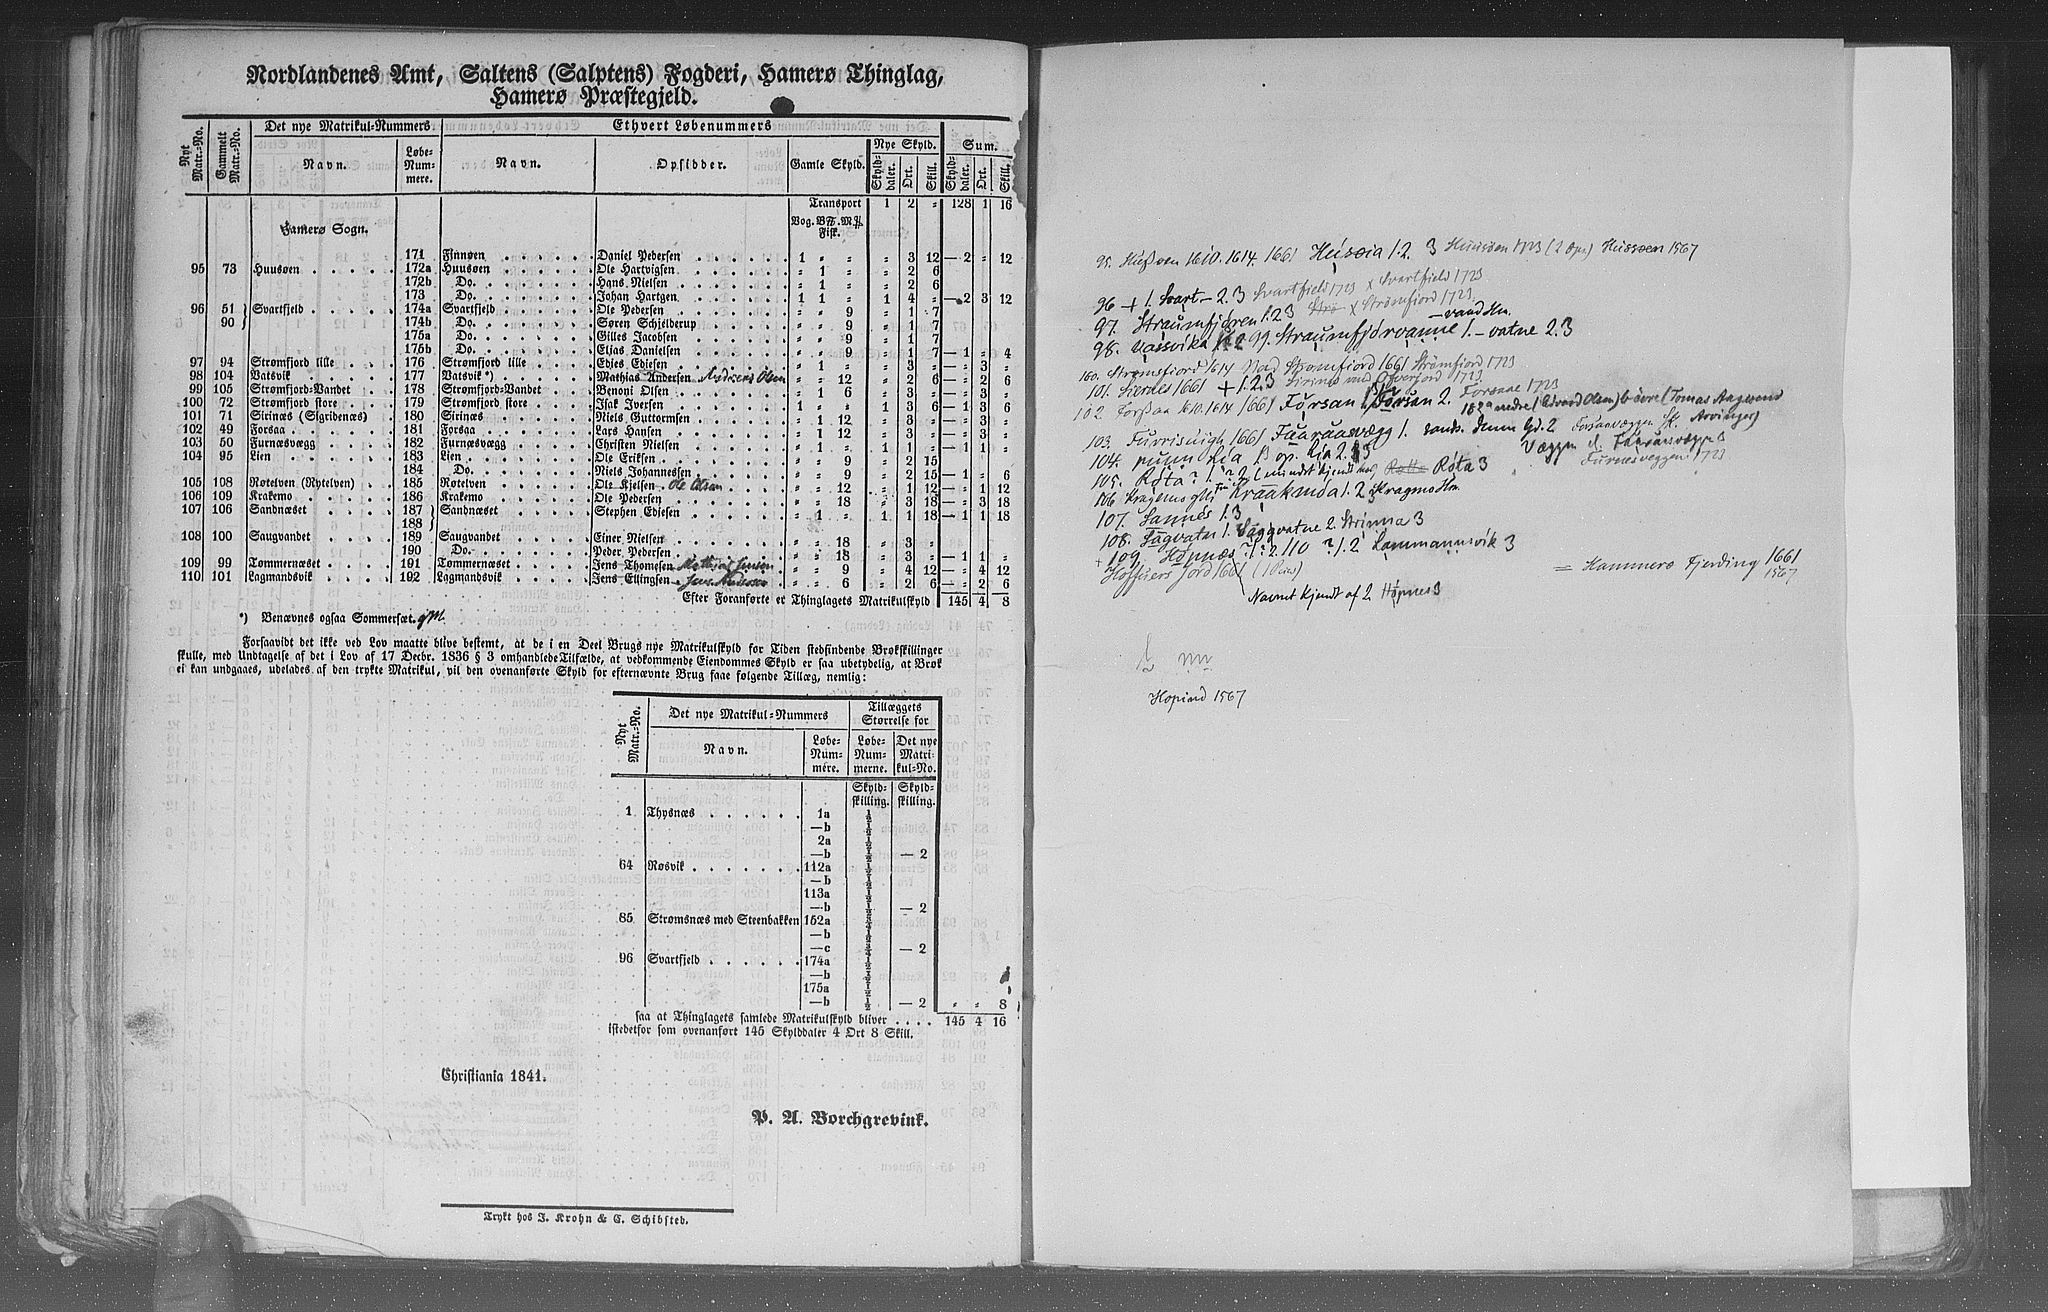 Nordlandenes Amt, Saltens (Salptens) Fogderi, Hamerø Thinglag,
Hamerø Præstegjeld.
Nyt Matr.=No. Gammelt Matr.=No. Det nye Matrikul=Nummers Ethvert Løbenummers
Nye Skyld. Sum.
Navn. Løbe=Nummere. Navn. Opsidder. Gamle Skyld. Skylddaler. Ort. Skill. Skylddaler. Ort. Skill.
Transport 1 2 " 128 1 16
Hamerø Sogn. Vog. B℔. M℔ Fisk.
171 Finnøen Daniel Pedersen 1 " " " 3 12 — 2 " 12
95 73 Huusøen 172a Huusøen Ole Hartvigsen " 1 " " 2 6
172b Do. Hans Nielsen " 1 " " 2 6
173 Do. Johan Hartgen 1 1 " 1 4 " — 2 3 12
96 51 Svartfjeld 174a Svartfjeld Ole Pedersen " " 9 " 1 7
90 174b Do. Søren Schjelderup " " 9 " 1 7
175a Do. Gilles Jacobsen " " 9 " 1 7
175b Do. Elias Danielsen " " 9 " 1 7 — 1 " 4
97 94 Strømfjord lille 176 Strømfjord lille Edies Ediesen " 1 " " 3 " — " 3 "
98 104 Vatsvik 177 Vatsvik *) Mathias Andersen Andreas Olsen " " 12 " 2 6 — " 2 6
99 105 Strømfjords=Vandet 178 Strømfjords=Vandet Benoni Olsen " 1 6 " 3 " — " 3 "
100 72 Strømfjord store 179 Strømfjord store Isak Iversen 1 " " 1 3 6 — 1 3 6
101 71 Sirinæs (Sigridenæs) 180 Sirinæs Niels Guttormsen " 1 12 " 3 " — " 3 "
102 49 Forsaa 181 Forsaa Lars Hansen " 1 12 " 3 " — " 3 "
103 50 Furnæsvægg 182 Furnæsvægg Christen Nielsen " 1 " " 1 " — " 1 "
104 95 Lien 183 Lien Ole Eriksen " " 9 " 2 15
184 Do. Niels Johannessen " " 9 " 2 15 — 1 " 6
105 108 Røtelven (Nytelven) 185 Røtelven Ole Kjelsen Ole Olsen " " 12 " 1 12 — " 1 12
106 109 Krakemo 186 Krakemo Ole Pedersen " " 18 " 3 18 — " 3 18
107 106 Sandnæset 187 Sandnæset Stephen Ediesen " 1 " 1 1 18 — 1 1 18
188
108 100 Saugvandet 189 Saugvandet Einer Nielsen " " 18 " 3 "
190 Do. Peder Pedersen " " 18 " 3 " — 1 1 "
109 99 Tommernæset 191 Tommernæset Jens Thomesen Mathias Jensen " " 9 " 4 12 — " 4 12
110 101 Lagmandsvik 192 Lagmandsvik Jens Ellingsen " " 6 " 2 6 — " 2 6
Efter Foranførte er Thinglagets Matrikulskyld 145 4 8
*) Benævnes ogsaa Sommersæt.
Forsaavidt det ikke ved Lov maatte blive bestemt, at de i en Deel Brugs nye Matrikulskyld for Tiden stedfindende Brøkskillinger
skulle, med Undtagelse af det i Lov af 17 Decbr. 1836 § 3 omhandlede Tilfælde, at vedkommende Eiendommes Skyld er saa ubetydelig, at Brøk
ei kan undgaaes, udelades af den trykte Matrikul, vil den ovenanførte Skyld for efternævnte Brug faae følgende Tillæg, nemlig:
Nyt Matr.=No. Det nye Matrikul=Nummers Tillæggets Størrelse for
Navn. Løbe=Nummere. Løbe=Nummerne. Det nye Matrikul=No.
Skyldskilling. Skyldskilling.
1 Thysnæs 1a ½
—b ½
2a ½
—b ½ — 2
64 Røsvik 112a ½
—b ½
113a ½
—b ½ — 2
85 Strømsnæs med Steenbakken 152a
—b
—c — 2
96 Svartfjeld 174a ½
—b ½
175a ½
—b ½ — 2 " " 8
saa at Thinglagets samlede Matrikulskyld bliver 145 4 16
istedetfor som ovenanført 145 Skylddaler 4 Ort 8 Skill.
Christiania 1841.
P. A. Borchgrevink.
Trykt hos J. Krohn & C. Schibsted.
95. Husøen 1610. 1614. 1661 Heisøia 1. 2. 3 Huusøen 1723 (2 Ops) Hussøen 1567
96 + 1. Svart— 2. 3 Svartfield 1723 x Svartfield 1723
97. Straumfjoren 1. 2 3 x Strømfiord 1723
98. Vassvika 1. 2 99. Straumfjorvanne 1. — vatne 2. 3
100. Strømsfiord 1614 Strømfiord 1661 Strømfiord 1723
101. Siernes 1661 + 1. 2. 3
102. Forsaa 1610. 1614 1661 Forsan 1. Forsan 2. Forsaae 1723
103. 1661 1. 2
Furnesveggen 1723
104. Lia 2. 3
105. Røta ? 1. ? 2 Røta 3
106 Kraakmoa 1. 2
107. Sannes 1. 3
108. Sagvatne 1. Saggvatne 2. 3
109. Hopnæs ? 1 ? 2 110 ? 1. 2 Lammannsvik 3
1661
= Hammerø Fjerding 1661
1567
Navnet kjendt af 2 Hopnes 3
Hopind 1567